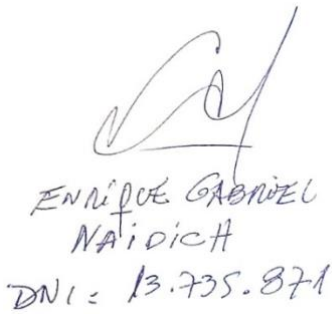 ENRIQUE GABRIEL
NAIDICH
DNI: 13.735.871